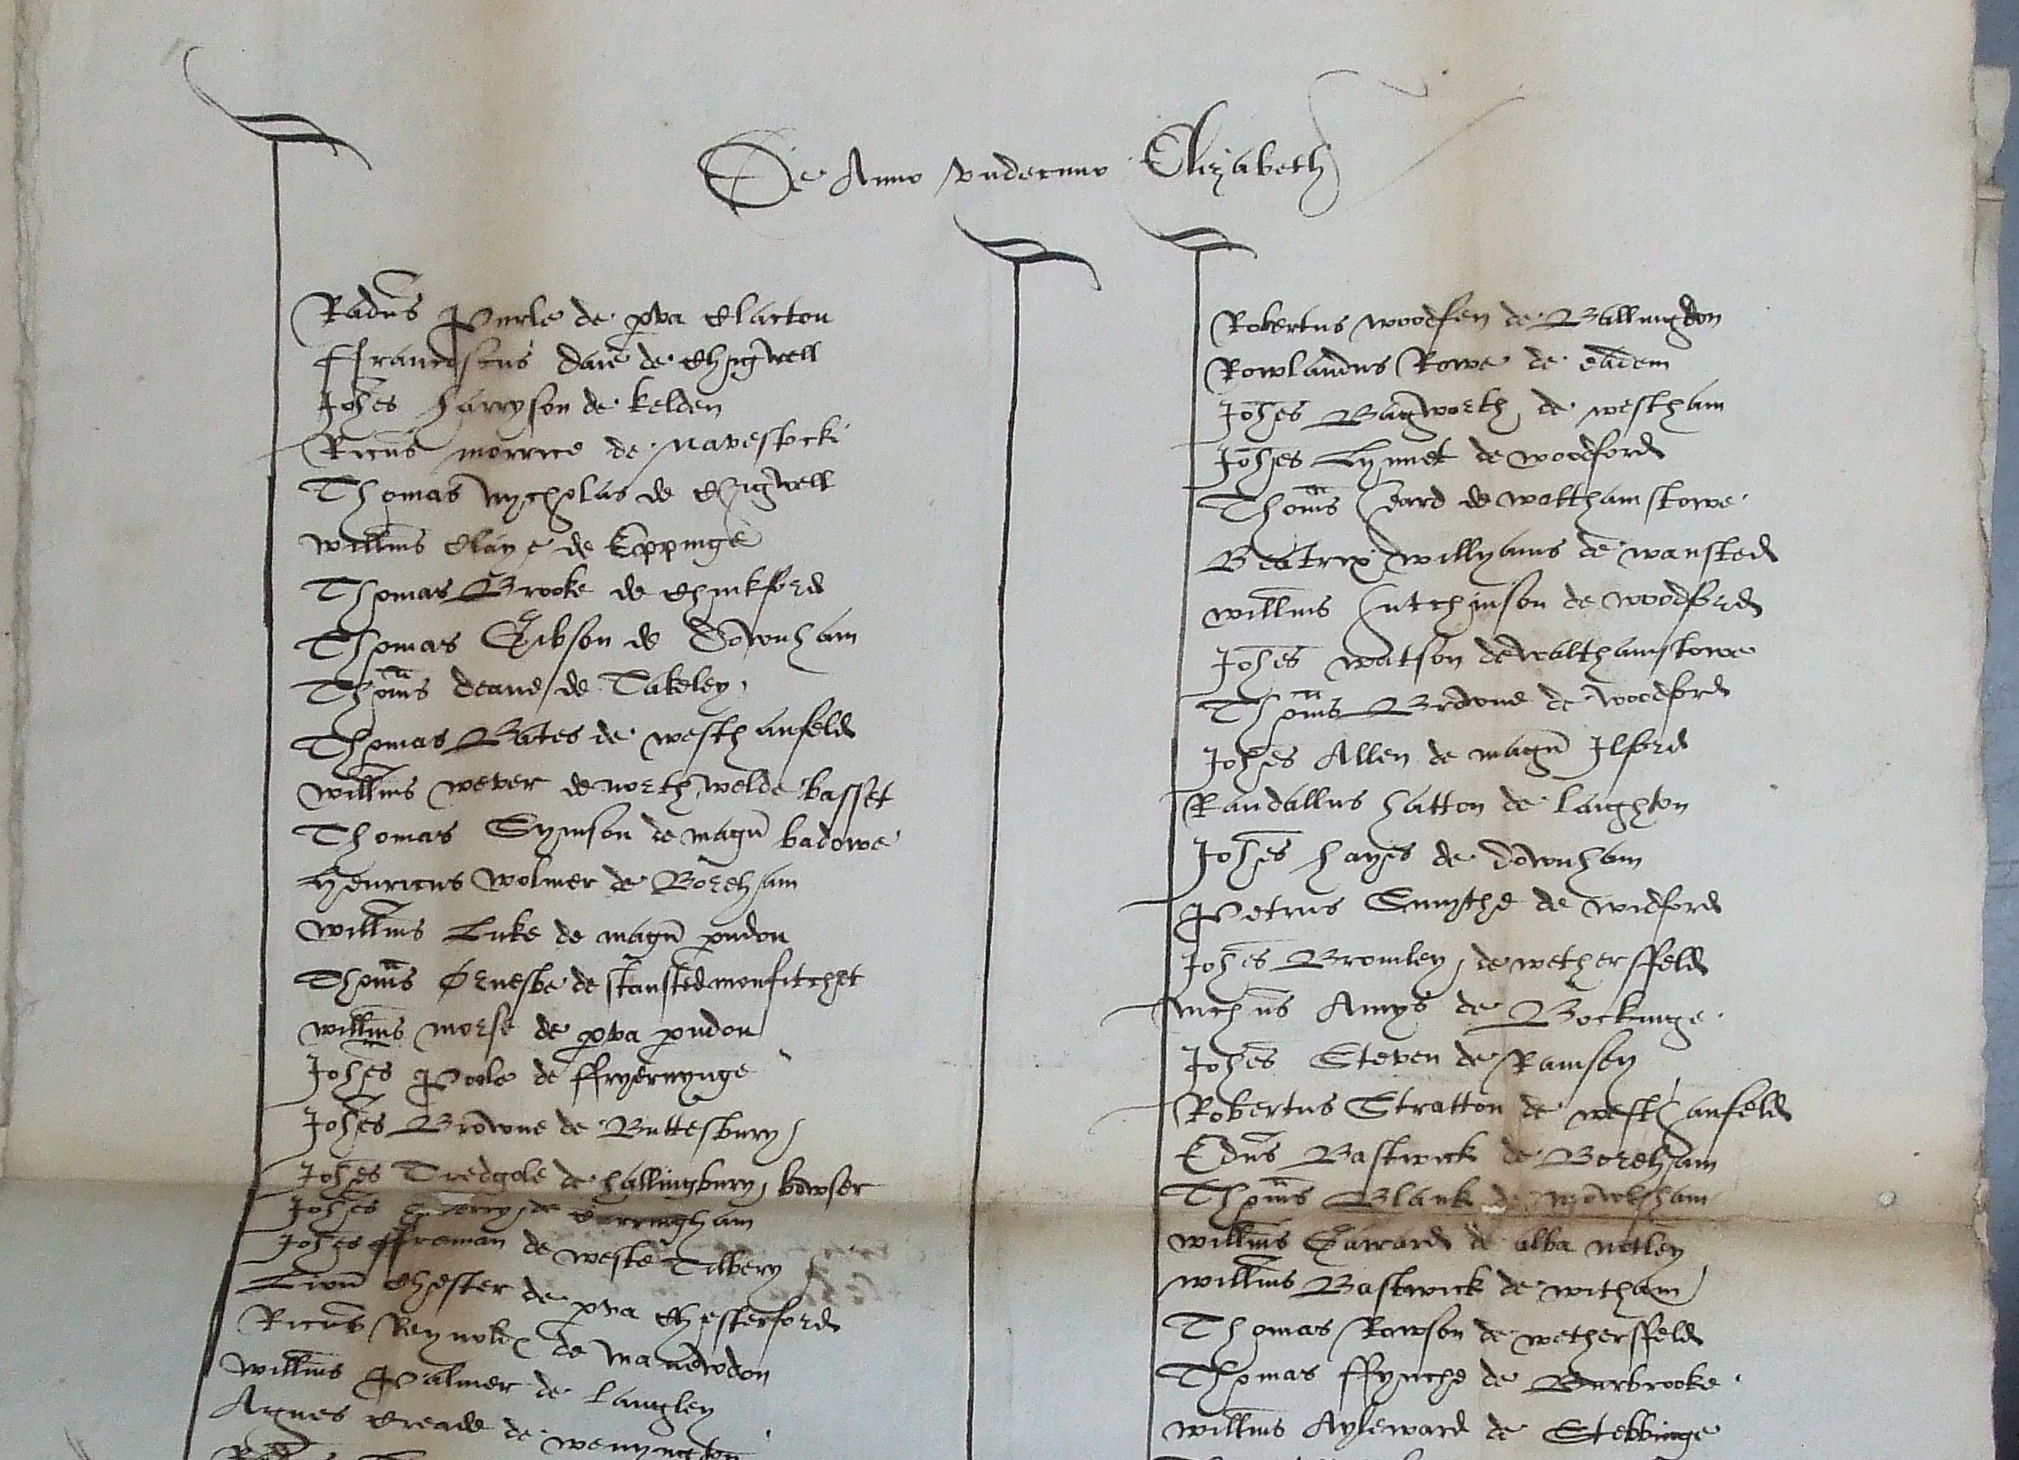 De Anno vndecimo Elizabeth
Radus Purle de pva Clacton
Ffranciscus Dare de Chigwell
Johes Harryson de kelden
Ricus morrice de Navestocke
Thomas Nycholas de Chigwell
Willms Claye de Eppinge
Thomas Brooke de Chinkford
Thomas Gibson de Downham
Thoms Deane de Takeley
Thomas Bates de westhanfeld
Willms wever de northwelde basset
Thomas Symson de magn badowe
Henricus wolmer de Boreham
Willms Luke de magn pndon
Thoms de stansted monfitchet
Willms morse de pva pndon
Johes Poole de ffryernynge
Johes Browne de Buttesbury
Johes Tredgole de hallingbury bowser
Johes de Corringham
Johes ffreman de weste Tilbery
Lion Chester de pva Chesterford
Ricus Reynolds de manewdon
Willms Palmer de Langley
Agnes Creade de wenyngton
Robertus woodfen de Ballingdon
Rowlandus Rowe de eadem
Johes Bagworth de westham
Johes Lynnet de woodford
Thoms Heard de walthamstowe
Beatrix willyams de wansted
Willms Hutchinson de woodford
Johes watson de walthamstowe
Thoms Browne de woodford
Johes Allen de magn Ilford
Randallus Hatton de Laighton
Johes Hayes de downham
Petrus Smythe de widford
Johes Bromley de wethersffeld
Nichus Amys de Bockinge
Johes Steven de Ramsey
Robertus Stratton de westhanfeld
Edus Bastwick de Boreham
Thoms Blank de mowlsham
Willms de alba notley
Willms Bastwick de witham
Thomas Rowson de wethersffeld
Thomas ffynche de Burbrooke
Willms Ayleward de Stebbinge